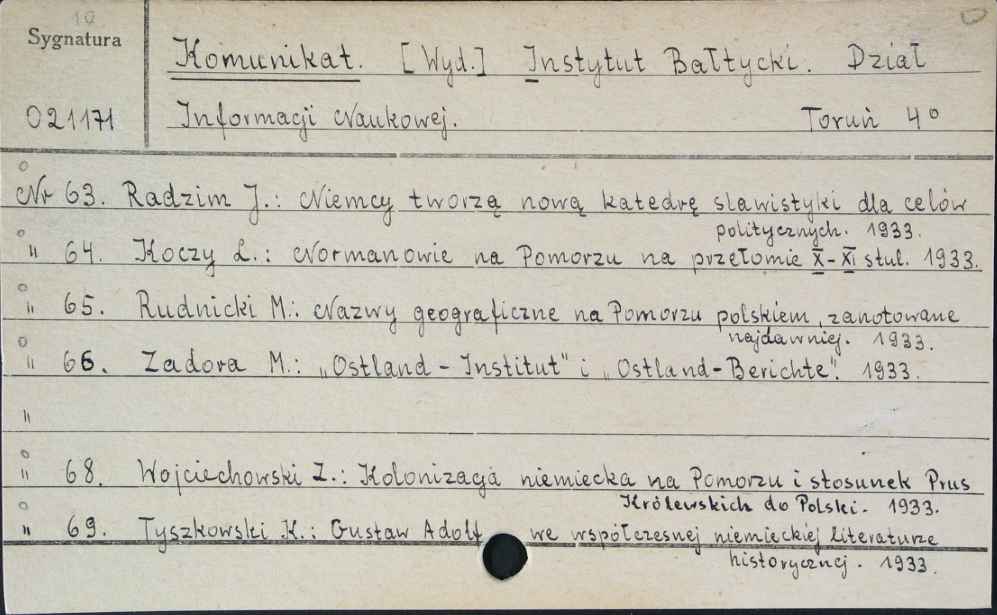 10
Sygnatura
Komunikat. [Wyd.] Instytut Bałtycki. Dział
021171
Informacji Naukowej. Toruń 4°
Nr 63. Radzim J.: Niemcy tworzą nową katedrę slawistyki dla celów
politycznych. 1933.
" 64. Koczy L.: Normanowie na Pomorzu na przełomie X-XI stul. 1933.
" 65. Rudnicki M.: Nazwy geograficzne na Pomorzu polskiem, zanotowane
najdawniej. 1933.
" 66. Zadora M.: „Ostland-Institut" i „Ostland-Berichte". 1933.
"
" 68. Wojciechowski Z.: Kolonizacja niemiecka na Pomorzu i stosunek Prus
Królewskich do Polski. 1933.
" 69. Tyszkowski K.: Gustaw Adolf we współczesnej niemieckiej literaturze
historycznej. 1933.